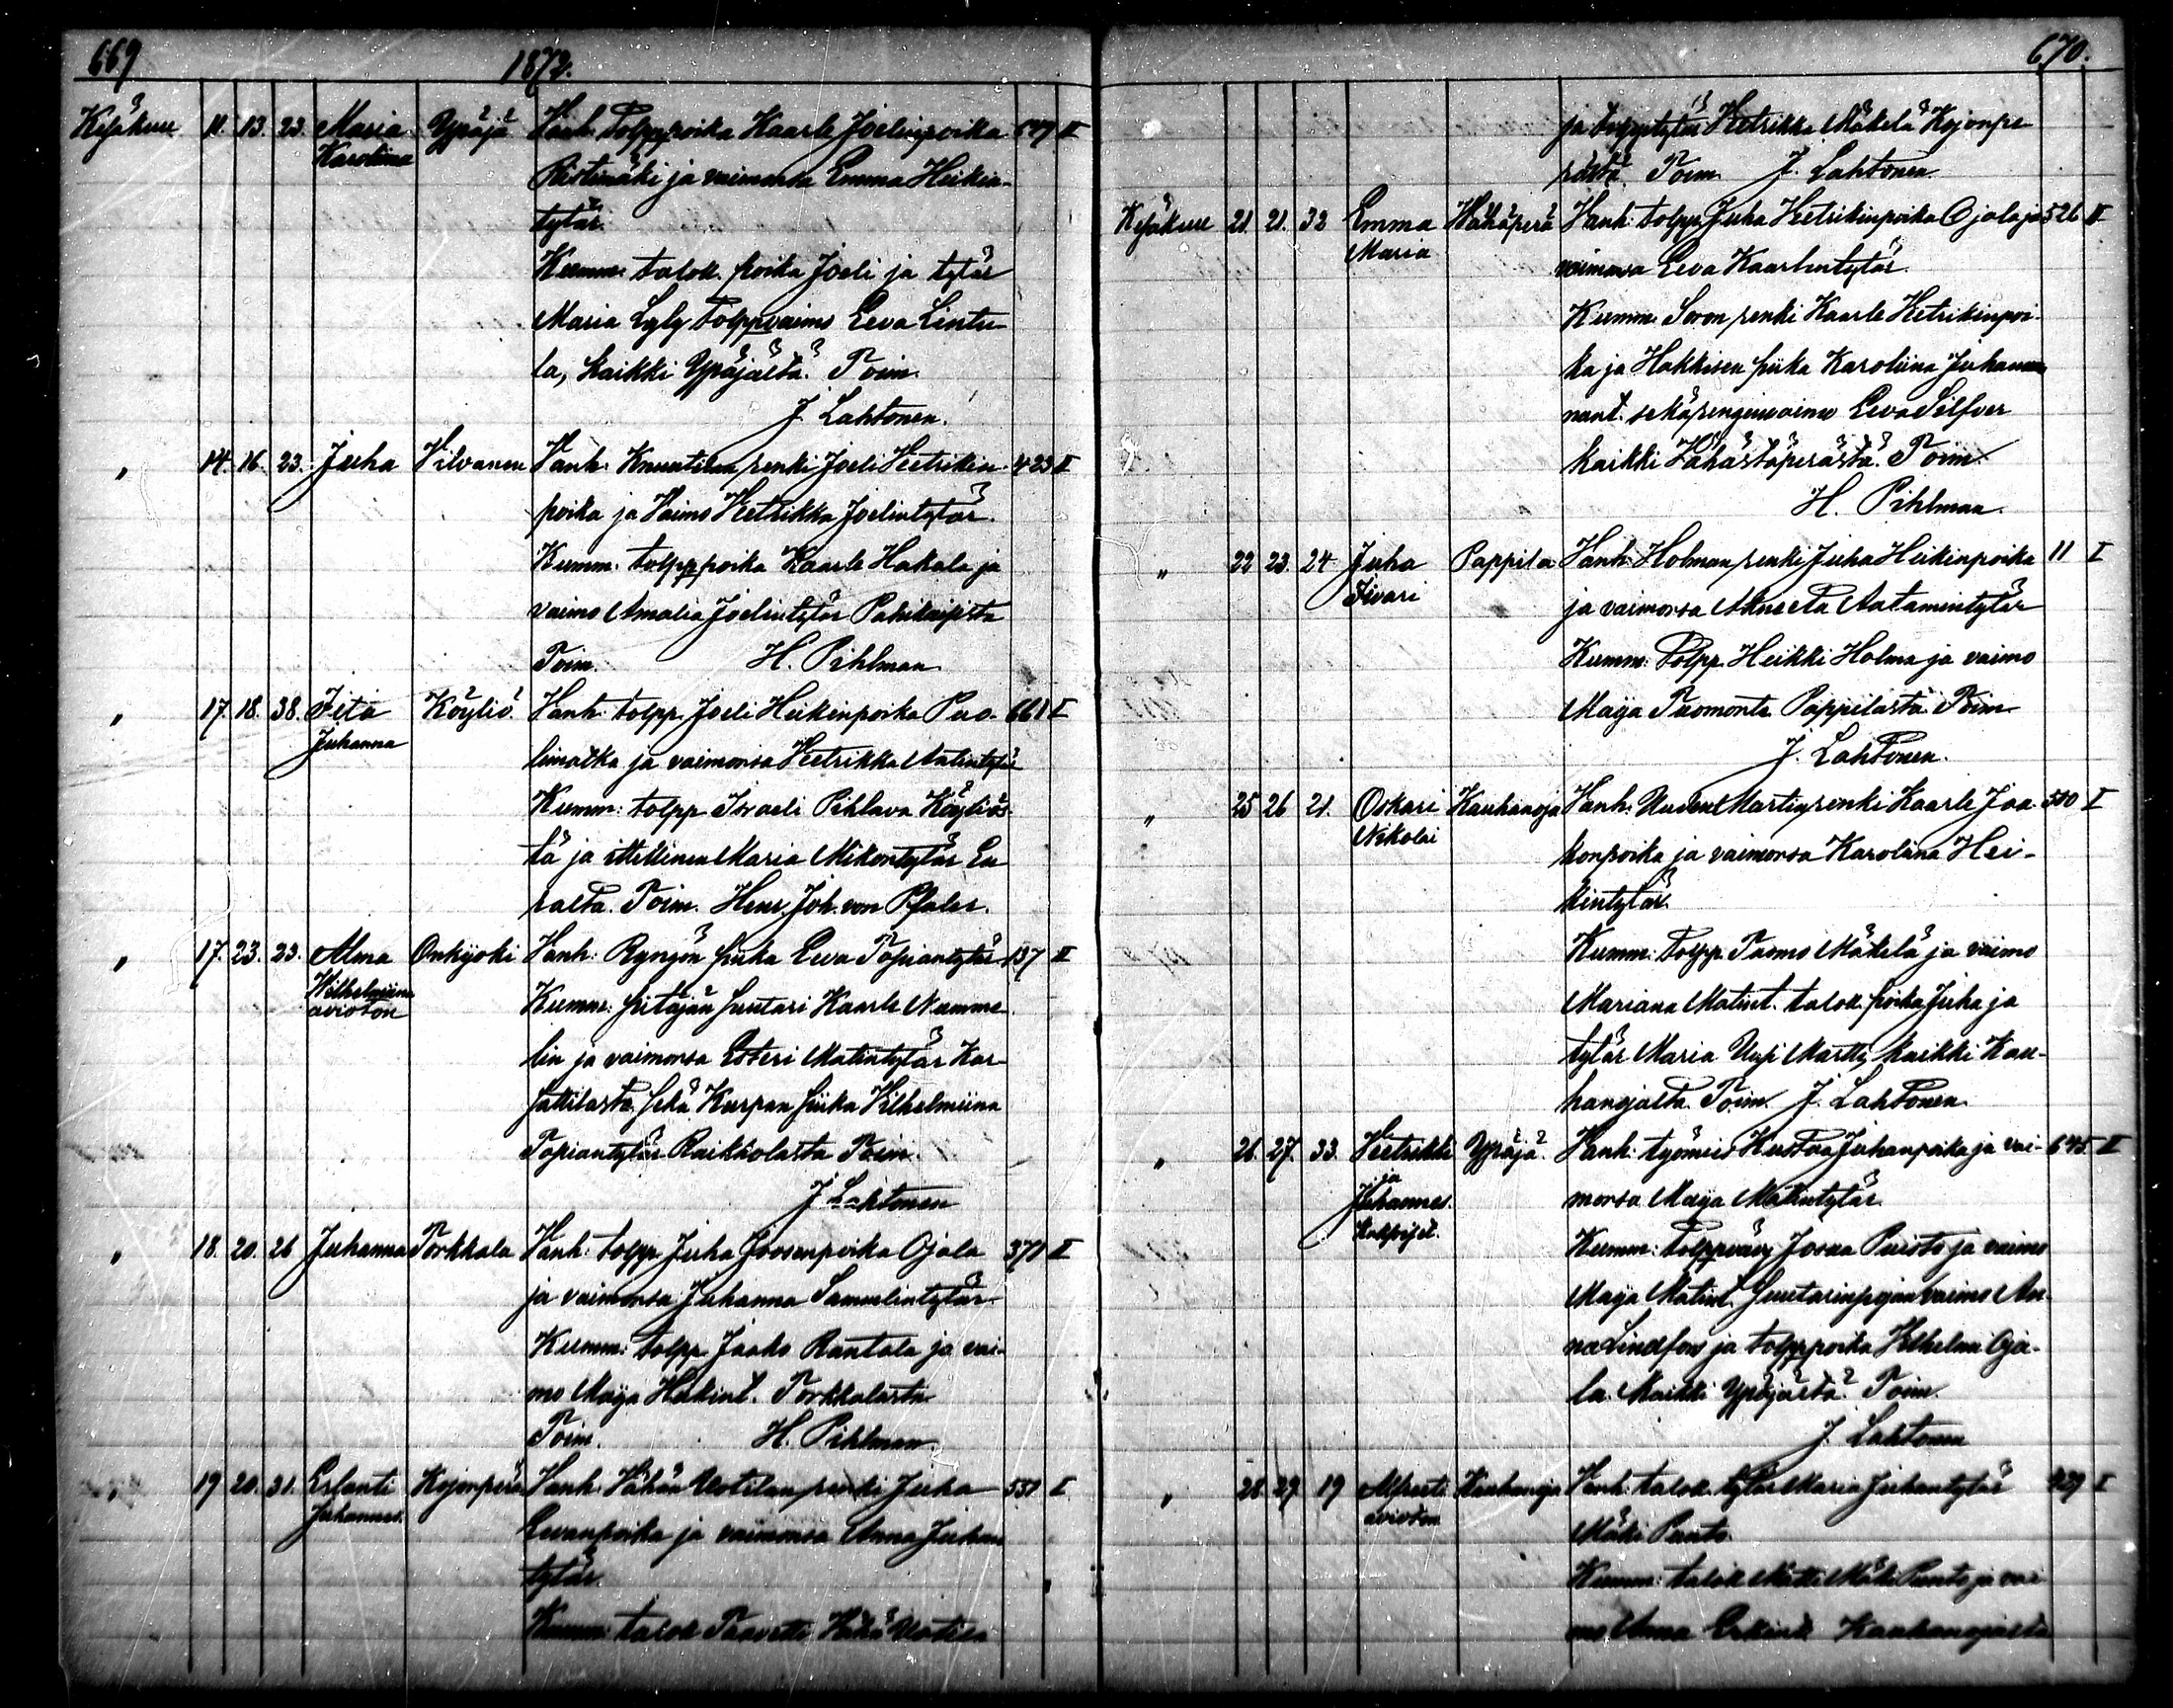 669 1872.
Kesäkuu 11. 13. 23. Maria Ypäjä Vanh. Tolppspoika Kaarle Joelinpoika 649 II
Karoliina Ristimäki ja vaimonsa Emma Heikin-
tytär.
Kumm. talok. poika Joeli ja tytär
Maria Lyly Tolppvaimo Eeva Lintu-
la, kaikki Ypäjältä. Toim.
J. Lahtonen.
" 14. 16. 23. Juha Vilvanen Vanh. Knuutilan renki Joeli Hetrikin- 423 II
poika ja Vaimo Hetrikka Joelintytär.
Kumm. tolpp poika Kaarle Hakala ja
vaimo Amalia Joelintytär
Toim. H. Pihlman.
" 17. 18. 38. Iita Köyliö. Vanh. tolpp. Joeli Heikinpoika Puo- 661 I
Juhanna limatka ja vaimonsa Hetrikka Antintytär
Kumm: tolpp Israeli Pihlava Köyliös-
tä ja ittellinen Maria Mikontytär Eu-
ralta. Toim. Henr. Joh. von Pfaler.
" 17. 23. 23. Alma Onkijoki Vanh: Ryngön piika Eeva Topiantytär 137 II
Wilhelmiina Kumm: pitäjän suutari Kaarle Numme-
avioton lin ja vaimonsa Esteri Matintytär Kar-
sattilasta sekä Karpan piika Vilhelmiina
Topiantytär Raikkolasta Toim.
J. Lahtonen
" 18. 20. 26 Juhanna Torkkala Vanh: tolpp Juha Joosenpoika Ojala 371 II
ja vaimonsa Juhanna Samulintytär
Kumm: tolpp Jaako Rantala ja vai-
mo Maija Heikint. Torkkalasta
Toim. H. Pihlman.
" 19 20. 31. Erlanti Kojonperä Vanh. Vähän Uotilan renki Juha 551 I
Juhannes. Eevanpoika ja vaimonsa Anna Juhan-
tytär.
Kumm: talok Taavetti Vähä Uotila
670.
ja tolpptytär Hetrikka Mäkelä Kojonpe-
rästä. Toim. J. Lahtonen.
Kesäkuu 21. 21. 32 Emma Vähäperä Vanh: tolpp Juha Hetrikinpoika Ojala ja 526 II
Maria vaimonsa Eeva Kaarlentytär.
Kumm. Soron renki Kaarle Hetrikinpoi-
ka ja Hakkisen piika Karoliina Juhan-
nant. sekä renginvaimo Eeva Silfver
kaikki Vähästäperästä. Toim.
H. Pihlman.
" 22 23. 24 Juha Pappila Vanh: Holman renki Juha Heikinpoika 11 I
Iivari ja vaimonsa Aatamintytär
Kumm: Tolpp Heikki Holma ja vaimo
Maija Tuomont. Pappilasta Toim
J. Lahtonen.
" 25 26 21. Oskari Kauhanoja Vanh: Uuden Martin renki Kaarle Jaa- 500 I
Nikolai konpoika ja vaimonsa Karoliina Hei-
kintytär.
Kumm: Tolpp Tuomo Mäkelä ja vaimo
Mariana Matint. talok. poika Juha ja
tytär Maria Uusi Martti, kaikki Kau-
hanojalta Toim. J. Lahtonen.
" 26. 27. 33. Hetrikki Ypäjä. Vanh: työmies Kustaa Juhanpoika ja vai- 645. II
ja monsa Maija Matintytär
Juhannes. Kumm: Tolppvävy Josua Puisto ja vaimo
kaksoiset. Maija Matint. Suutarinpojan vaimo An-
na Lindfors ja tolpppoika Vilhelm Oja-
la. Kaikki Ypäjästä. Toim.
J. Lahtonen
" 28. 29. 19 Alfreeti Kauhanoja Vanh: talok. tytär Maria Juhantytär 429 I
avioton Mäki Punto.
Kumm: talok Matti Mäki Punto ja vai-
mo Anna Erkint. Kauhanojalta